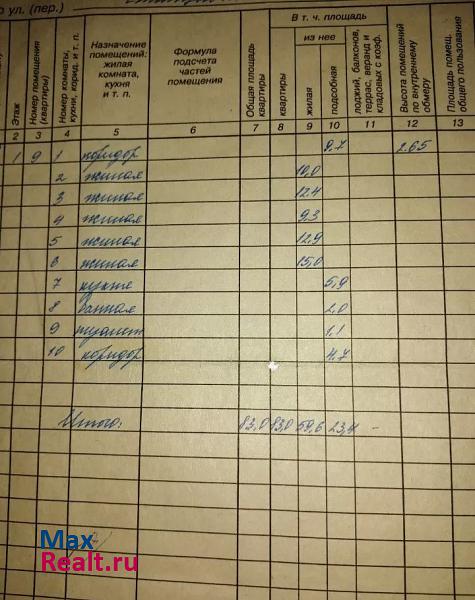 ул. (пер.)
В т. ч. площадь
из нее
Этаж
Номер помещения (квартиры)
Номер комнаты, кухни, корид. и т. п.
Назначение помещений: жилая комната, кухня и т. п.
Формула подсчета частей помещения
Общая площадь квартиры
квартиры
жилая
подсобная
лоджий, балконов, террас, веранд и кладовых с коэф.
Высота помещений по внутреннему обмеру
Площадь помещ. общего пользования
2 3 4 5 6 7 8 9 10 11 12 13
1 9 1 коридор 9,7 2.65
2 жилая 10,0
3 жилая 12.4
4 жилая 9,3
5 жилая 12,9
6 жилая 15,0
7 кухне 5,9
8 ванная 2,0
9 туалет 1.1
10 коридор 4,7
Итого: 83,0 83,0 59,6 23,4 -
Max
Realt.ru